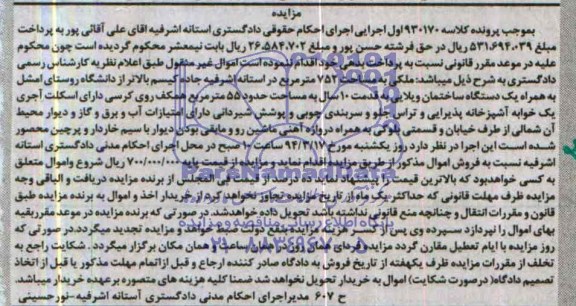 مزایده
بموجب پرونده کلاسه ۹۳۰۱۷۰ اول اجرایی اجرای احکام حقوقی دادگستری استانه اشرفیه اقای علی آقائی پور به پرداخت
مبلغ ۵۳۱۶۹۴۰۳۹ ریال در حق فرشته حسن پور و مبلغ ۲۶،۵۸۴،۷۰۲ ریال بابت نیمعشر محکوم گردیده است چون محکوم
علیه در موعد مقرر قانونی نسبت به پرداخت محکوم به اقدام ننموده است اموال غیر منقول طبق اعلام نظریه کارشناس رسمی
دادگستری به شرح ذیل میباشد: ملکی به مساحت ۷۵۲ مترمربع در استانه اشرفیه جاده کیسم بالاتر از دانشگاه روستای امشل
به همراه یک دستگاه ساختمان ویلایی با قدمت ۱۰ سال به مساحت حدود ۵۵ مترمربع همکف روی کرسی دارای اسکلت آجری
یک خوابه آشپزخانه پذیرایی و تراس جلو و سربندی چوبی و پوشش شیروانی دارای امتیازات آب و برق و گاز و دیوار محیط
آن شمالی از طرف خیابان و قسمتی بلوکی به همراه دروازه آهنی ماشین رو و مابقی بودن دیوار با سیم خاردار و پرچین محصور
شده است این اجرا در نظر دارد روز یکشنبه مورخ ۹۴/۳/۱۷ ساعت ۱۰ صبح در محل اجرای احکام مدنی دادگستری استانه
اشرفیه نسبت به فروش اموال مذکور از طریق مزایده اقدام نماید و مزایده از قیمت پایه ۷۰۰/۰۰۰/۰۰۰ ریال شروع واموال متعلق
به کسی خواهدبود که بالاترین قیمت را پیشنهاد نماید ده درصد از بهاء فی المجلس از برنده مزایده دریافت و الباقی وجه
مزایده ظرف مهلت قانونی که حداکثر یک ماه از تاریخ مزایده تجاوز نخواهد کرد از خریدار اخذ و اموال به برنده مزایده طبق
قانون و مقررات انتقال و چنانچه منع قانونی نداشته باشد تحویل داده خواهدشد. در صورتی که برنده مزایده در موعد مقرربقیه
بهای اموال را نپردازد سپرده وی پس از کسر هزینه مزایده به نفع دولت ضبط خواهد و مزایده تجدید میگردد. در صورتی که
روز مزایده با ایام تعطیل مقارن گردد مزایده فردای همان روز در همان ساعت و همان مکان برگزار میگردد. شکایت راجع به
تخلف از مقررات مزایده ظرف یکهفته از تاریخ فروش به دادگاه صادر کننده ارجاع و قبل ازاتمام مهلت مذکور یا قبل از اتخاذ
تصمیم دادگاه( درصورت شکایت) اموال به خریدار تحویل نخواهد شد ضمنا کلیه هزینه های متصوره برعهده خریدار میباشد.
ح ۶۰۷ مدیراجرای احکام مدنی دادگستری آستانه اشرفیه -نورحسینی